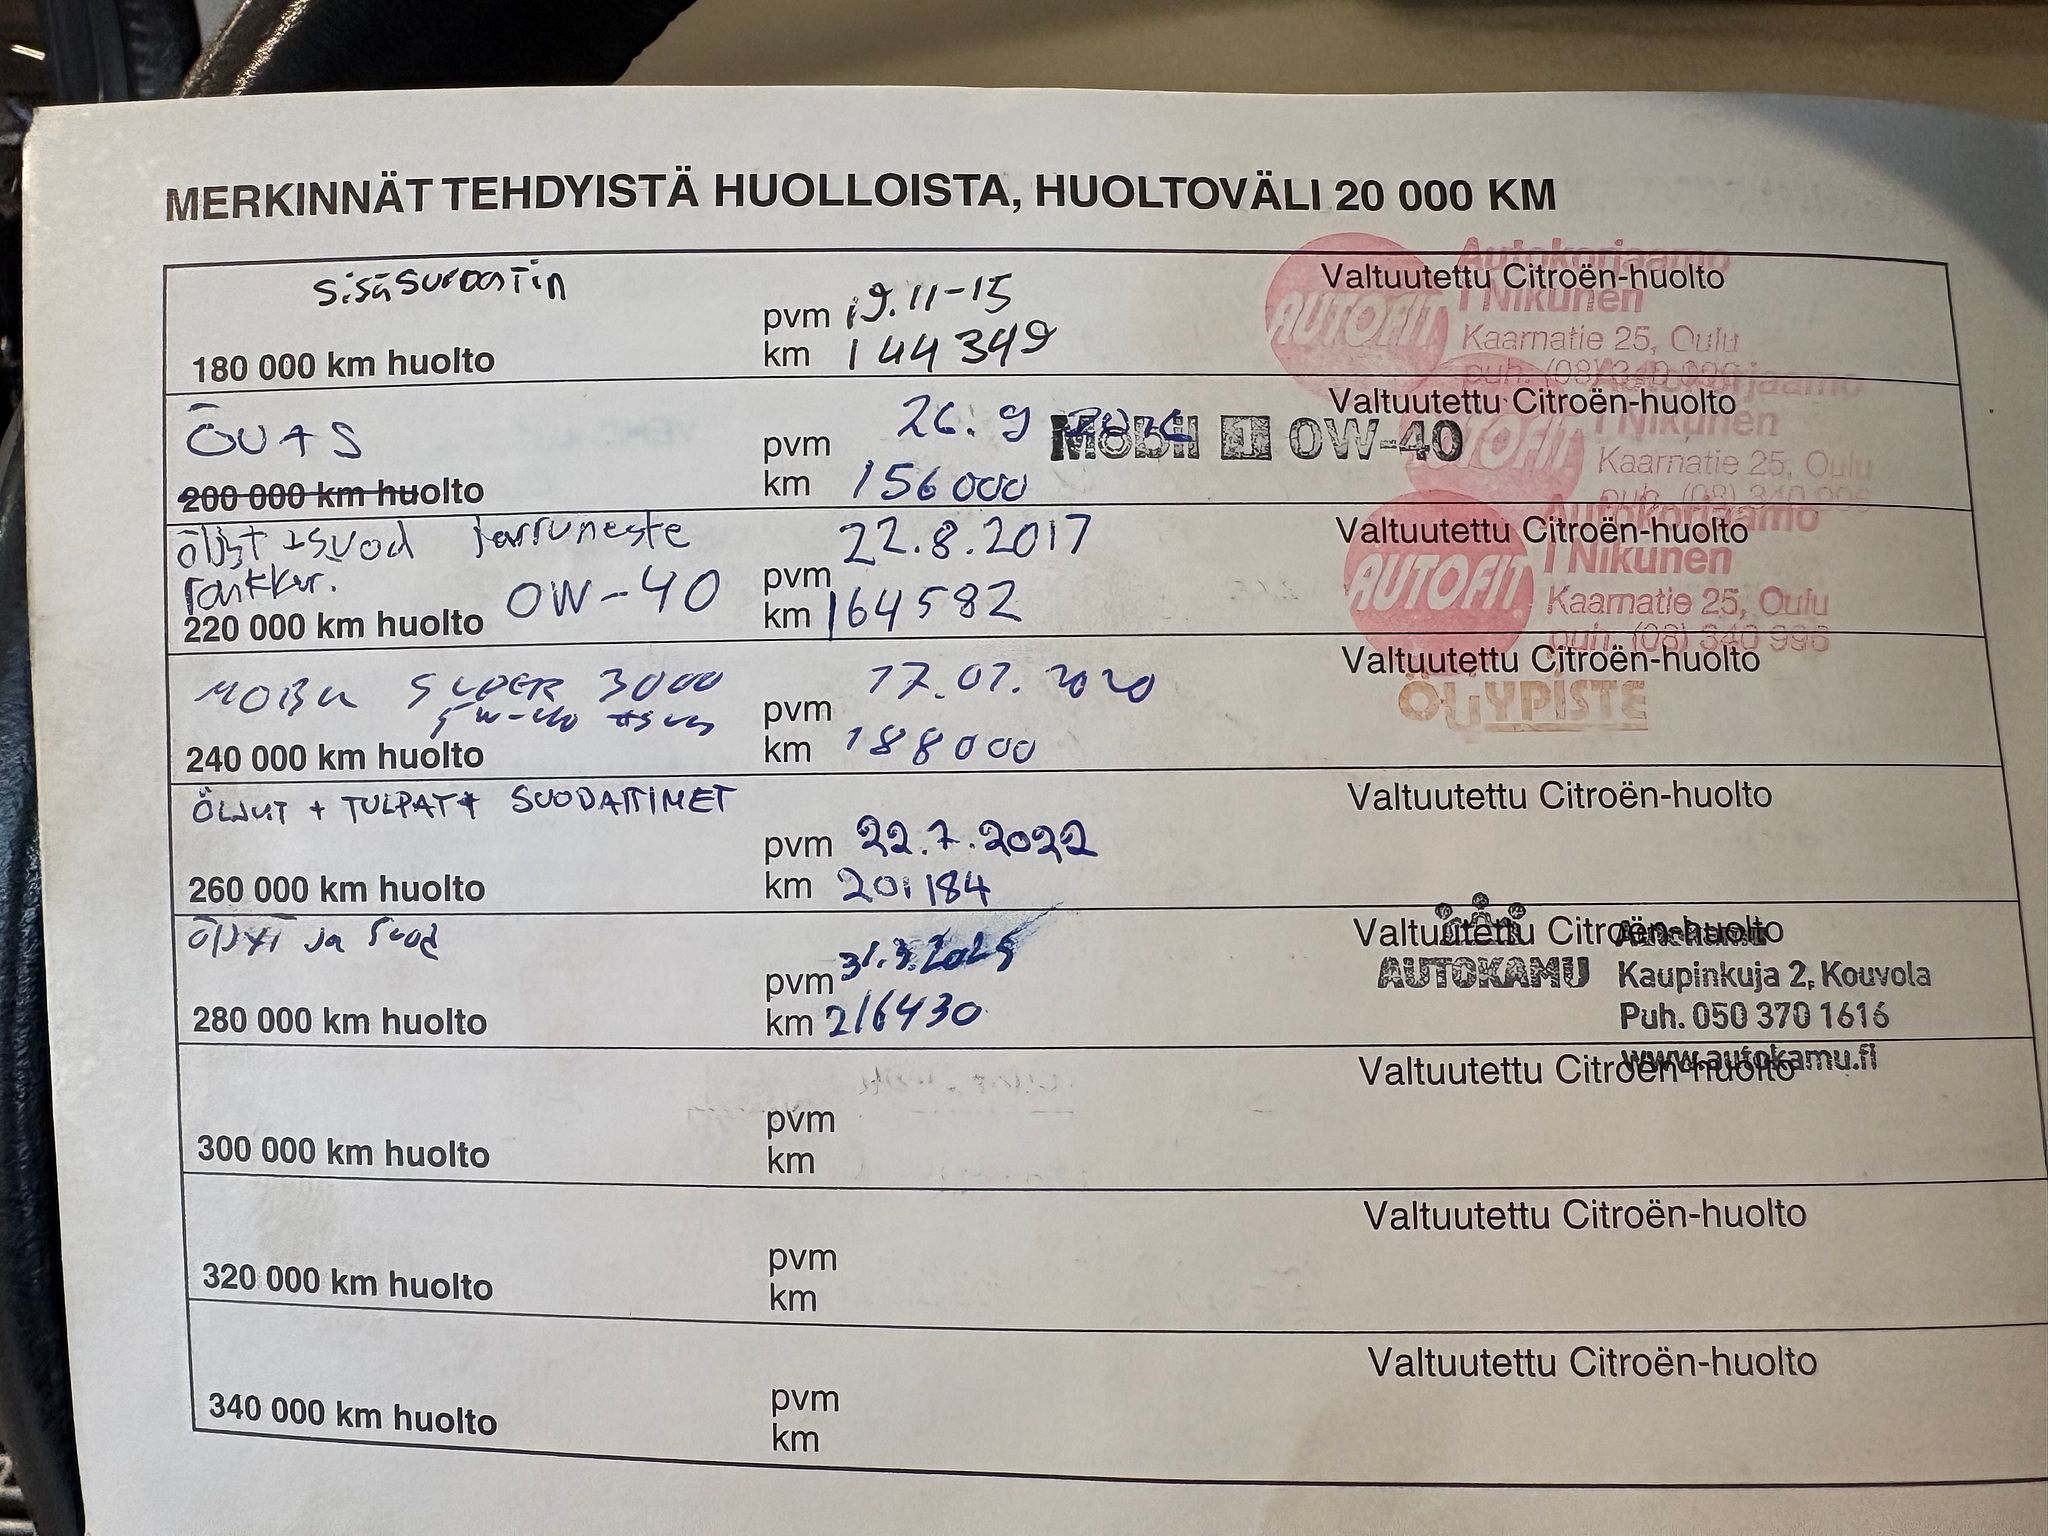 MERKINNÄT TEHDYISTÄ HUOLLOISTA, HUOLTOVÄLI 20 000 KM
sisäsuodatin
180 000 km huolto
pvm 19.11-15
km 144349
Valtuutettu Citroën-huolto
AUTOFIT
Autokorjaamo
I Nikunen
Kaarnatie 25, Oulu
puh. (08) 340 996
200 000 km huolto
pvm 26.9
km 156000
Mobil 1 0W-40
Valtuutettu Citroën-huolto
AUTOFIT
Autokorjaamo
I Nikunen
Kaarnatie 25, Oulu
puh. (08) 340 996
öljyt +suod jarruneste
0W-40
220 000 km huolto
pvm 22.8.2017
km 164582
Valtuutettu Citroën-huolto
AUTOFIT
Autokorjaamo
I Nikunen
Kaarnatie 25, Oulu
puh. (08) 340 996
MOBIL SUPER 3000
5W-40
240 000 km huolto
pvm 17.07.2020
km 188000
Valtuutettu Citroën-huolto
ÖLJYPISTE
ÖLJYT + TULPAT + SUODATTIMET
260 000 km huolto
pvm 22.7.2022
km 201184
Valtuutettu Citroën-huolto
öljyt ja suod
280 000 km huolto
pvm 31.3.2025
km 216430
Valtuutettu Citroën-huolto
AUTOKAMU
Kaupinkuja 2, Kouvola
Puh. 050 370 1616
www.autokamu.fi
300 000 km huolto
pvm
km
Valtuutettu Citroën-huolto
320 000 km huolto
pvm
km
Valtuutettu Citroën-huolto
340 000 km huolto
pvm
km
Valtuutettu Citroën-huolto